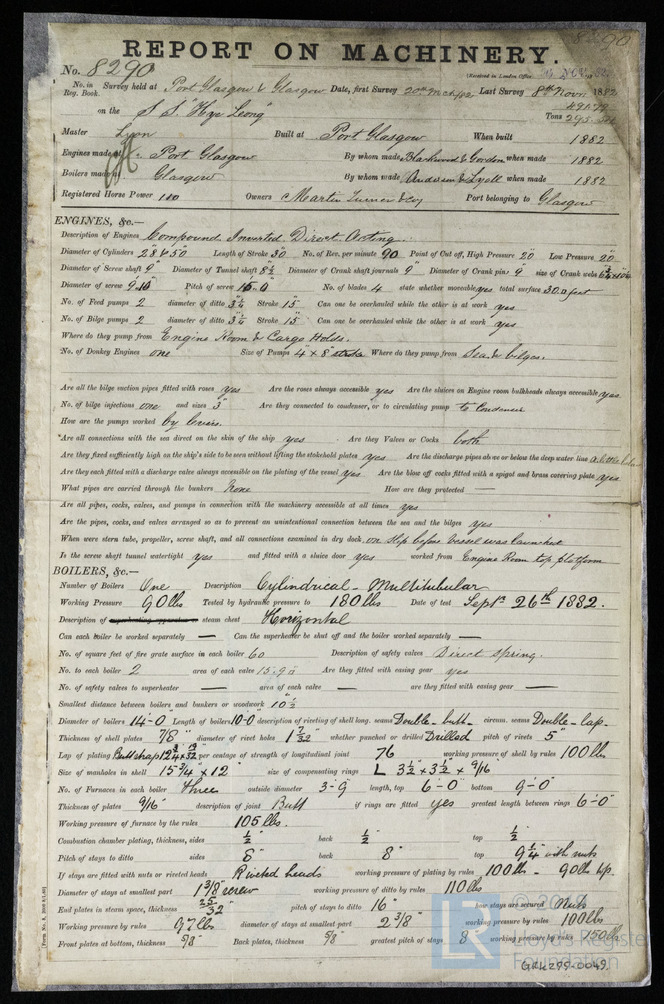 8290
REPORT ON MACHINERY.
No. 8290
(Received in London Office
No. in Reg. Book. Survey held at Port Glasgow & Glasgow Date, first Survey 20th Mch/82 Last Survey 8th Novr 1882
on the S S "Hye Leong" Tons
Master Lyon Built at Port Glasgow When built 1882
Engines made at Port Glasgow By whom made Blackwood & Gordon when made 1882
Boilers made at Glasgow By whom made Anderson & Lyall when made 1882
Registered Horse Power 110 Owners Martin Turner & Coy Port belonging to Glasgow
ENGINES, &c.—
Description of Engines Compound Inverted Direct Acting.
Diameter of Cylinders 28 & 50 Length of Stroke 30 No. of Rev. per minute 90 Point of Cut off, High Pressure 20 Low Pressure 20
Diameter of Screw shaft 9" Diameter of Tunnel shaft 8½ Diameter of Crank shaft journals 9 Diameter of Crank pin 9" size of Crank webs
Diameter of screw Pitch of screw 15.0 No. of blades 4 state whether moveable yes total surface 30 □ feet
No. of Feed pumps 2 diameter of ditto 3¼ Stroke 15" Can one be overhauled while the other is at work yes
No. of Bilge pumps 2 diameter of ditto 3¼ Stroke 15" Can one be overhauled while the other is at work yes
Where do they pump from Engine Room & Cargo Holds.
No. of Donkey Engines one Size of Pumps 4" x 8" stroke Where do they pump from Sea & bilges.
Are all the bilge suction pipes fitted with roses yes Are the roses always accessible yes Are the sluices on Engine room bulkheads always accessible yes
No. of bilge injections one and sizes 3" Are they connected to condenser, or to circulating pump to Condenser
How are the pumps worked by levers.
*Are all connections with the sea direct on the skin of the ship yes Are they Valves or Cocks both
Are they fixed sufficiently high on the ship's side to be seen without lifting the stokehold plates yes Are the discharge pipes above or below the deep water line a little below
Are they each fitted with a discharge valve always accessible on the plating of the vessel yes Are the blow off cocks fitted with a spigot and brass covering plate yes
What pipes are carried through the bunkers None How are they protected —
Are all pipes, cocks, valves, and pumps in connection with the machinery accessible at all times yes
Are the pipes, cocks, and valves arranged so as to prevent an unintentional connection between the sea and the bilges yes
When were stern tube, propeller, screw shaft, and all connections examined in dry dock, on slip before vessel was launched
Is the screw shaft tunnel watertight yes and fitted with a sluice door yes worked from Engine Room top platform
BOILERS, &c.—
Number of Boilers One Description Cylindrical - Multitubular
Working Pressure 90 lbs Tested by hydraulic pressure to 180 lbs Date of test Septr 26th 1882.
Description of superheating apparatus or steam chest Horizontal
Can each boiler be worked separately — Can the superheater be shut off and the boiler worked separately —
No. of square feet of fire grate surface in each boiler 60 Description of safety valves Direct spring.
No. to each boiler 2 area of each valve 15.9 □ Are they fitted with easing gear yes
No. of safety valves to superheater — area of each valve — are they fitted with easing gear —
Smallest distance between boilers and bunkers or woodwork 10½
Diameter of boilers 14-0" Length of boilers 10-0 description of riveting of shell long. seams Double - butt circum. seams Double - lap.
Thickness of shell plates 7/8" diameter of rivet holes 1 7/32" whether punched or drilled Drilled pitch of rivets 5"
Lap of plating Butt strap per centage of strength of longitudinal joint 76 working pressure of shell by rules 100 lbs
Size of manholes in shell 15¾" x 12" size of compensating rings L 3½ x 3½ x 9/16"
No. of Furnaces in each boiler three outside diameter 3-9 length, top 6-0" bottom 9-0"
Thickness of plates 9/16" description of joint Butt if rings are fitted yes greatest length between rings 6-0"
Working pressure of furnace by the rules 105 lbs.
Combustion chamber plating, thickness, sides ½" back ½" top ½"
Pitch of stays to ditto sides 8" back 8" top 9¼" with nuts
If stays are fitted with nuts or riveted heads Riveted heads working pressure of plating by rules 100 lbs - 90 lbs top.
Diameter of stays at smallest part 1⅜ screw working pressure of ditto by rules 110 lbs
End plates in steam space, thickness 25/32" pitch of stays to ditto 16" how stays are secured Nuts
Working pressure by rules 97 lbs diameter of stays at smallest part 2⅜" working pressure by rules 100 lbs
Front plates at bottom, thickness ⅝" Back plates, thickness ⅝" greatest pitch of stays 8 working pressure by rules 150 lbs
LR
Lloyd's Register
Foundation
GRK255-0049